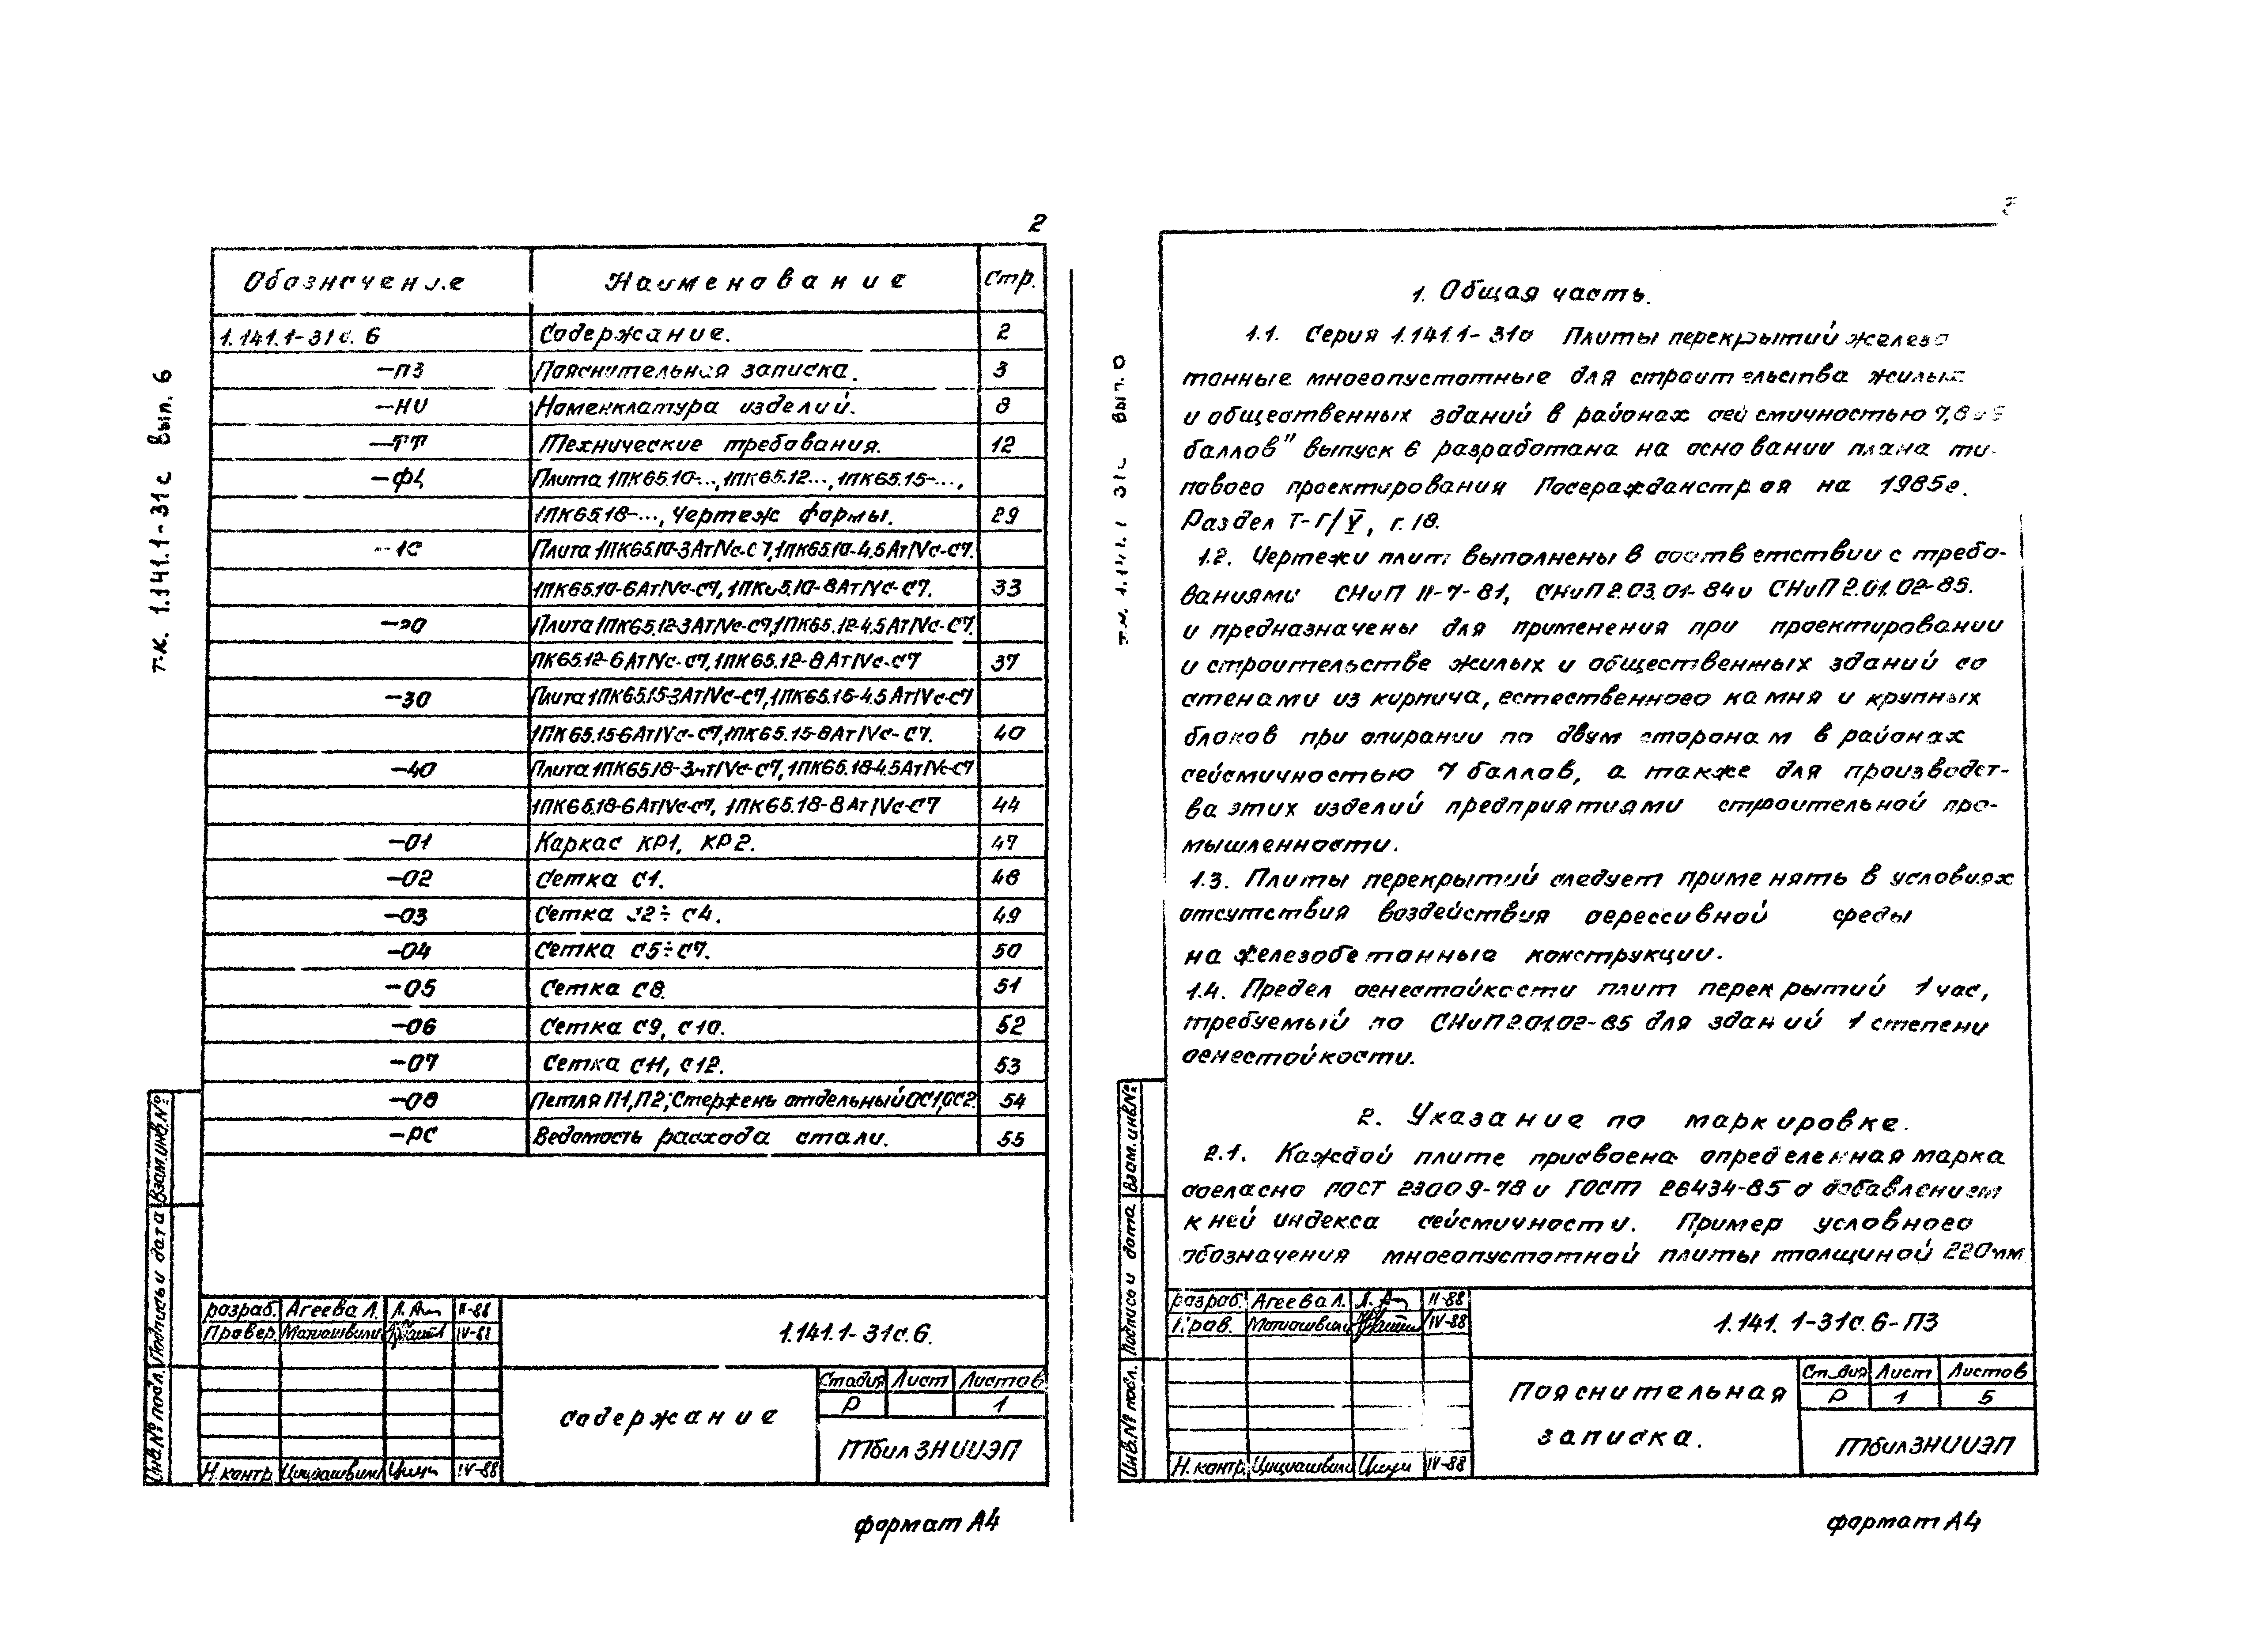 2
Обозначение Наименование Стр.
1.141.1-31с.6 Содержание. 2
-ПЗ Пояснительная записка. 3
-НИ Номенклатура изделий. 8
-ТТ Технические требования. 12
Плита 1ПК65.10-..., 1ПК65.12-..., 1ПК65.15-...,
1ПК65.18-..., Чертеж формы. 29
-1С Плита 1ПК65.10-3АтIVс-С7, 1ПК65.10-4,5АтIVс-С7.
1ПК65.10-6АтIVс-С7, 1ПК65.10-8АтIVс-С7. 33
-20 Плита 1ПК65.12-3АтIVс-С7, 1ПК65.12-4,5АтIVс-С7.
ПК65.12-6АтIVс-С7, 1ПК65.12-8АтIVс-С7 37
-30 Плита 1ПК65.15-3АтIVс-С7, 1ПК65.15-4.5АтIVс-С7
1ПК65.15-6АтIVс-С7, 1ПК65.15-8АтIVс-С7. 40
-40 Плита 1ПК65.18-3АтIVс-С7, 1ПК65.18-4,5АтIVс-С7
1ПК65.18-6АтIVс-С7, 1ПК65.18-8АтIVс-С7 44
-01 Каркас КР1, КР2. 47
-02 Сетка С1. 48
-03 Сетка С2÷С4. 49
-04 Сетка С5÷С7. 50
-05 Сетка С8. 51
-06 Сетка С9, С10. 52
-07 Сетка С11, С12. 53
-08 Петля П1, П2; Стержень отдельный ОС1, ОС2. 54
-РС Ведомость расхода стали. 55
т.к. 1.141.1-31с Вып. 6
Инв.№ подл. Подпись и дата Взам.инв.№
разраб. Агеева Л. II-88
Провер. IV-88
Н.контр. Цициашвили IV-88
1.141.1-31с.6.
Содержание
Стадия Лист Листов
Р 1
ТбилЗНИИЭП
формат А4
т.к. 1.141.1 31с вып. 0
1. Общая часть.
1.1. Серия 1.141.1-31с Плиты перекрытий железо
тонные многопустотные для строительства жилых
и общественных зданий в районах сейсмичностью 7,8 и 9
баллов" выпуск 6 разработана на основании плана ти-
пового проектирования Госгражданстроя на 1985г.
Раздел Т-Г/V, г.18.
1.2. Чертежи плит выполнены в соответствии с требо-
ваниями СНиП II-7-81, СНиП 2.03.01-84 и СНиП 2.01.02-85.
и предназначены для применения при проектировании
и строительстве жилых и общественных зданий со
стенами из кирпича, естественного камня и крупных
блоков при опирании по двум сторонам в районах
сейсмичностью 7 баллов, а также для производст-
ва этих изделий предприятиями строительной про-
мышленности.
1.3. Плиты перекрытий следует применять в условиях
отсутствия воздействия агрессивной среды
на железобетонные конструкции.
1.4. Предел огнестойкости плит перекрытий 1 час,
требуемый по СНиП 2.01.02-85 для зданий 1 степени
огнестойкости.
2. Указание по маркировке.
2.1. Каждой плите присвоена определенная марка
согласно ГОСТ 23009-78 и ГОСТ 26434-85 с добавлением
к ней индекса сейсмичности. Пример условного
обозначения многопустотной плиты толщиной 220мм
Инв.№ подл. Подпись и дата Взам.инв№
разраб. Агеева Л. II-88
Пров. IV-88
Н.контр. Цициашвили IV-88
1.141.1-31с.6-ПЗ
Пояснительная
записка.
Стадия Лист Листов
Р 1 5
ТбилЗНИИЭП
формат А4